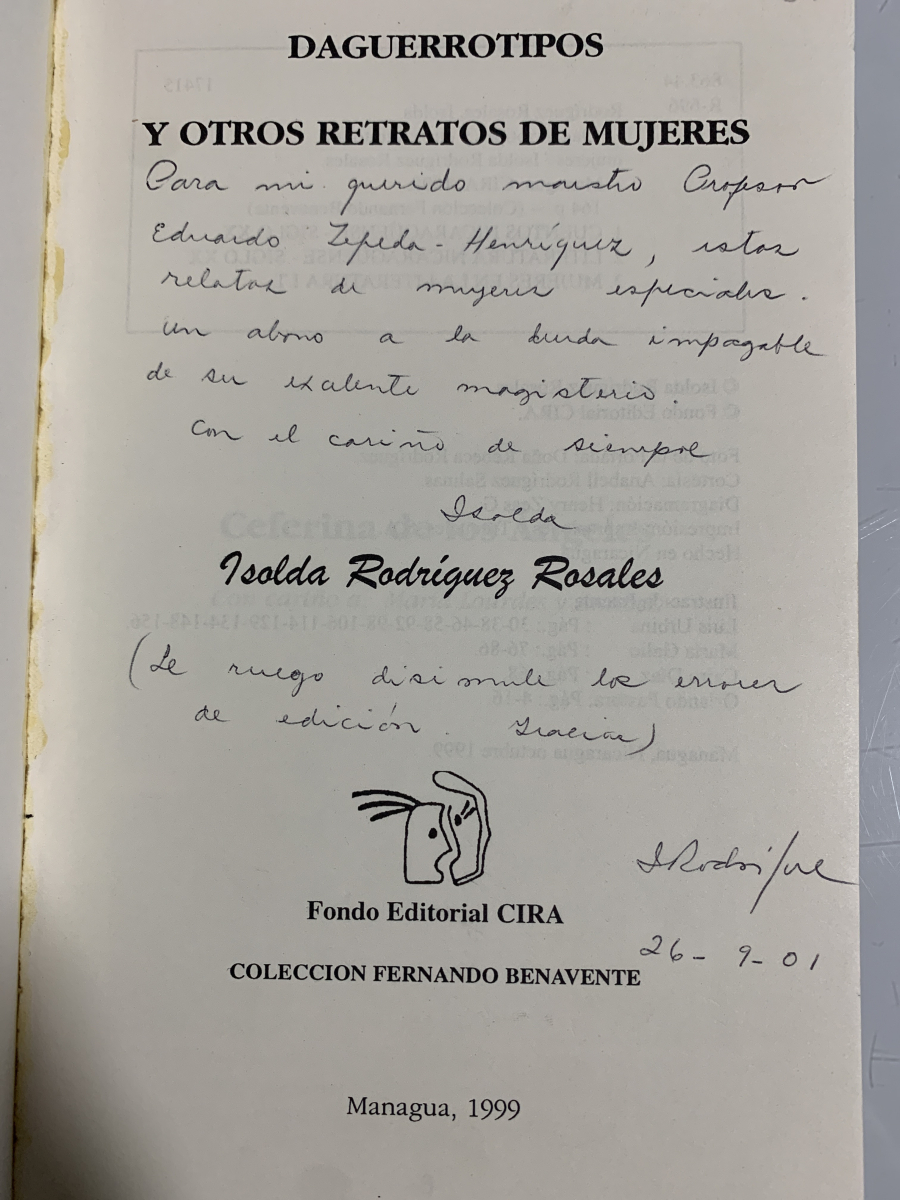 DAGUERROTIPOS
Y OTROS RETRATOS DE MUJERES
Para mi querido maestro Profesor
Eduardo Zepeda-Henríquez, estos
relatos de mujeres especiales.
un abono a la deuda impagable
de su exelente magisterio.
Con el cariño de siempre
Isolda
Isolda Rodríguez Rosales
(Le ruego disimule los errores
de edición. Gracias)
IRodríguez
26-9-01
Fondo Editorial CIRA
COLECCION FERNANDO BENAVENTE
Managua, 1999